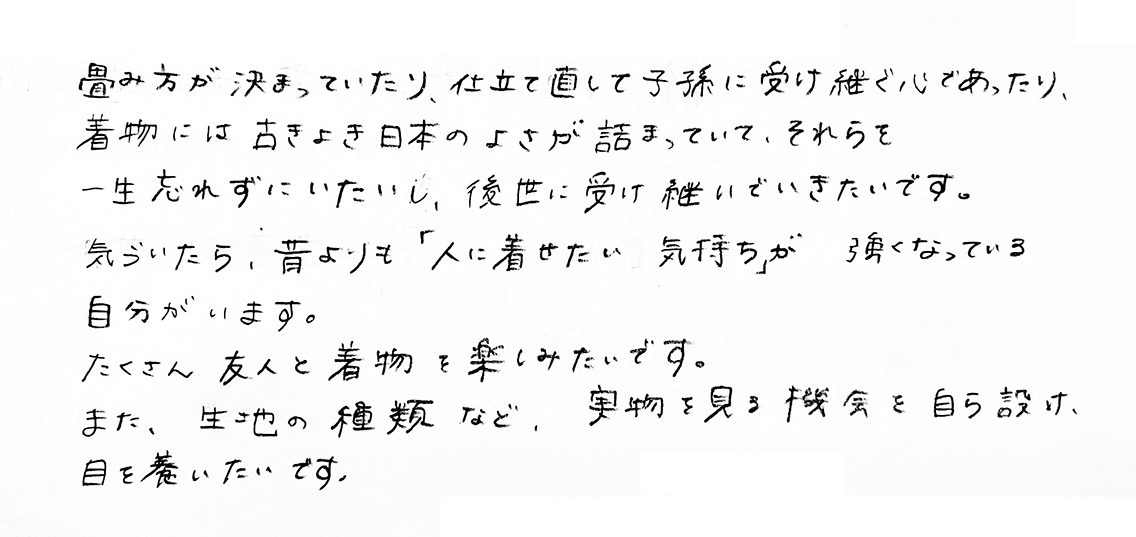 畳み方が決まっていたり、仕立て直して子孫に受け継ぐ心であったり、
着物には古きよき日本のよさが詰まっていて、それらを
一生忘れずにいたいし、後世に受け継いでいきたいです。
気づいたら、昔よりも「人に着せたい気持ち」が強くなっている
自分がいます。
たくさん友人と着物を楽しみたいです。
また、生地の種類など、実物を見る機会を自ら設け、
目を養いたいです。